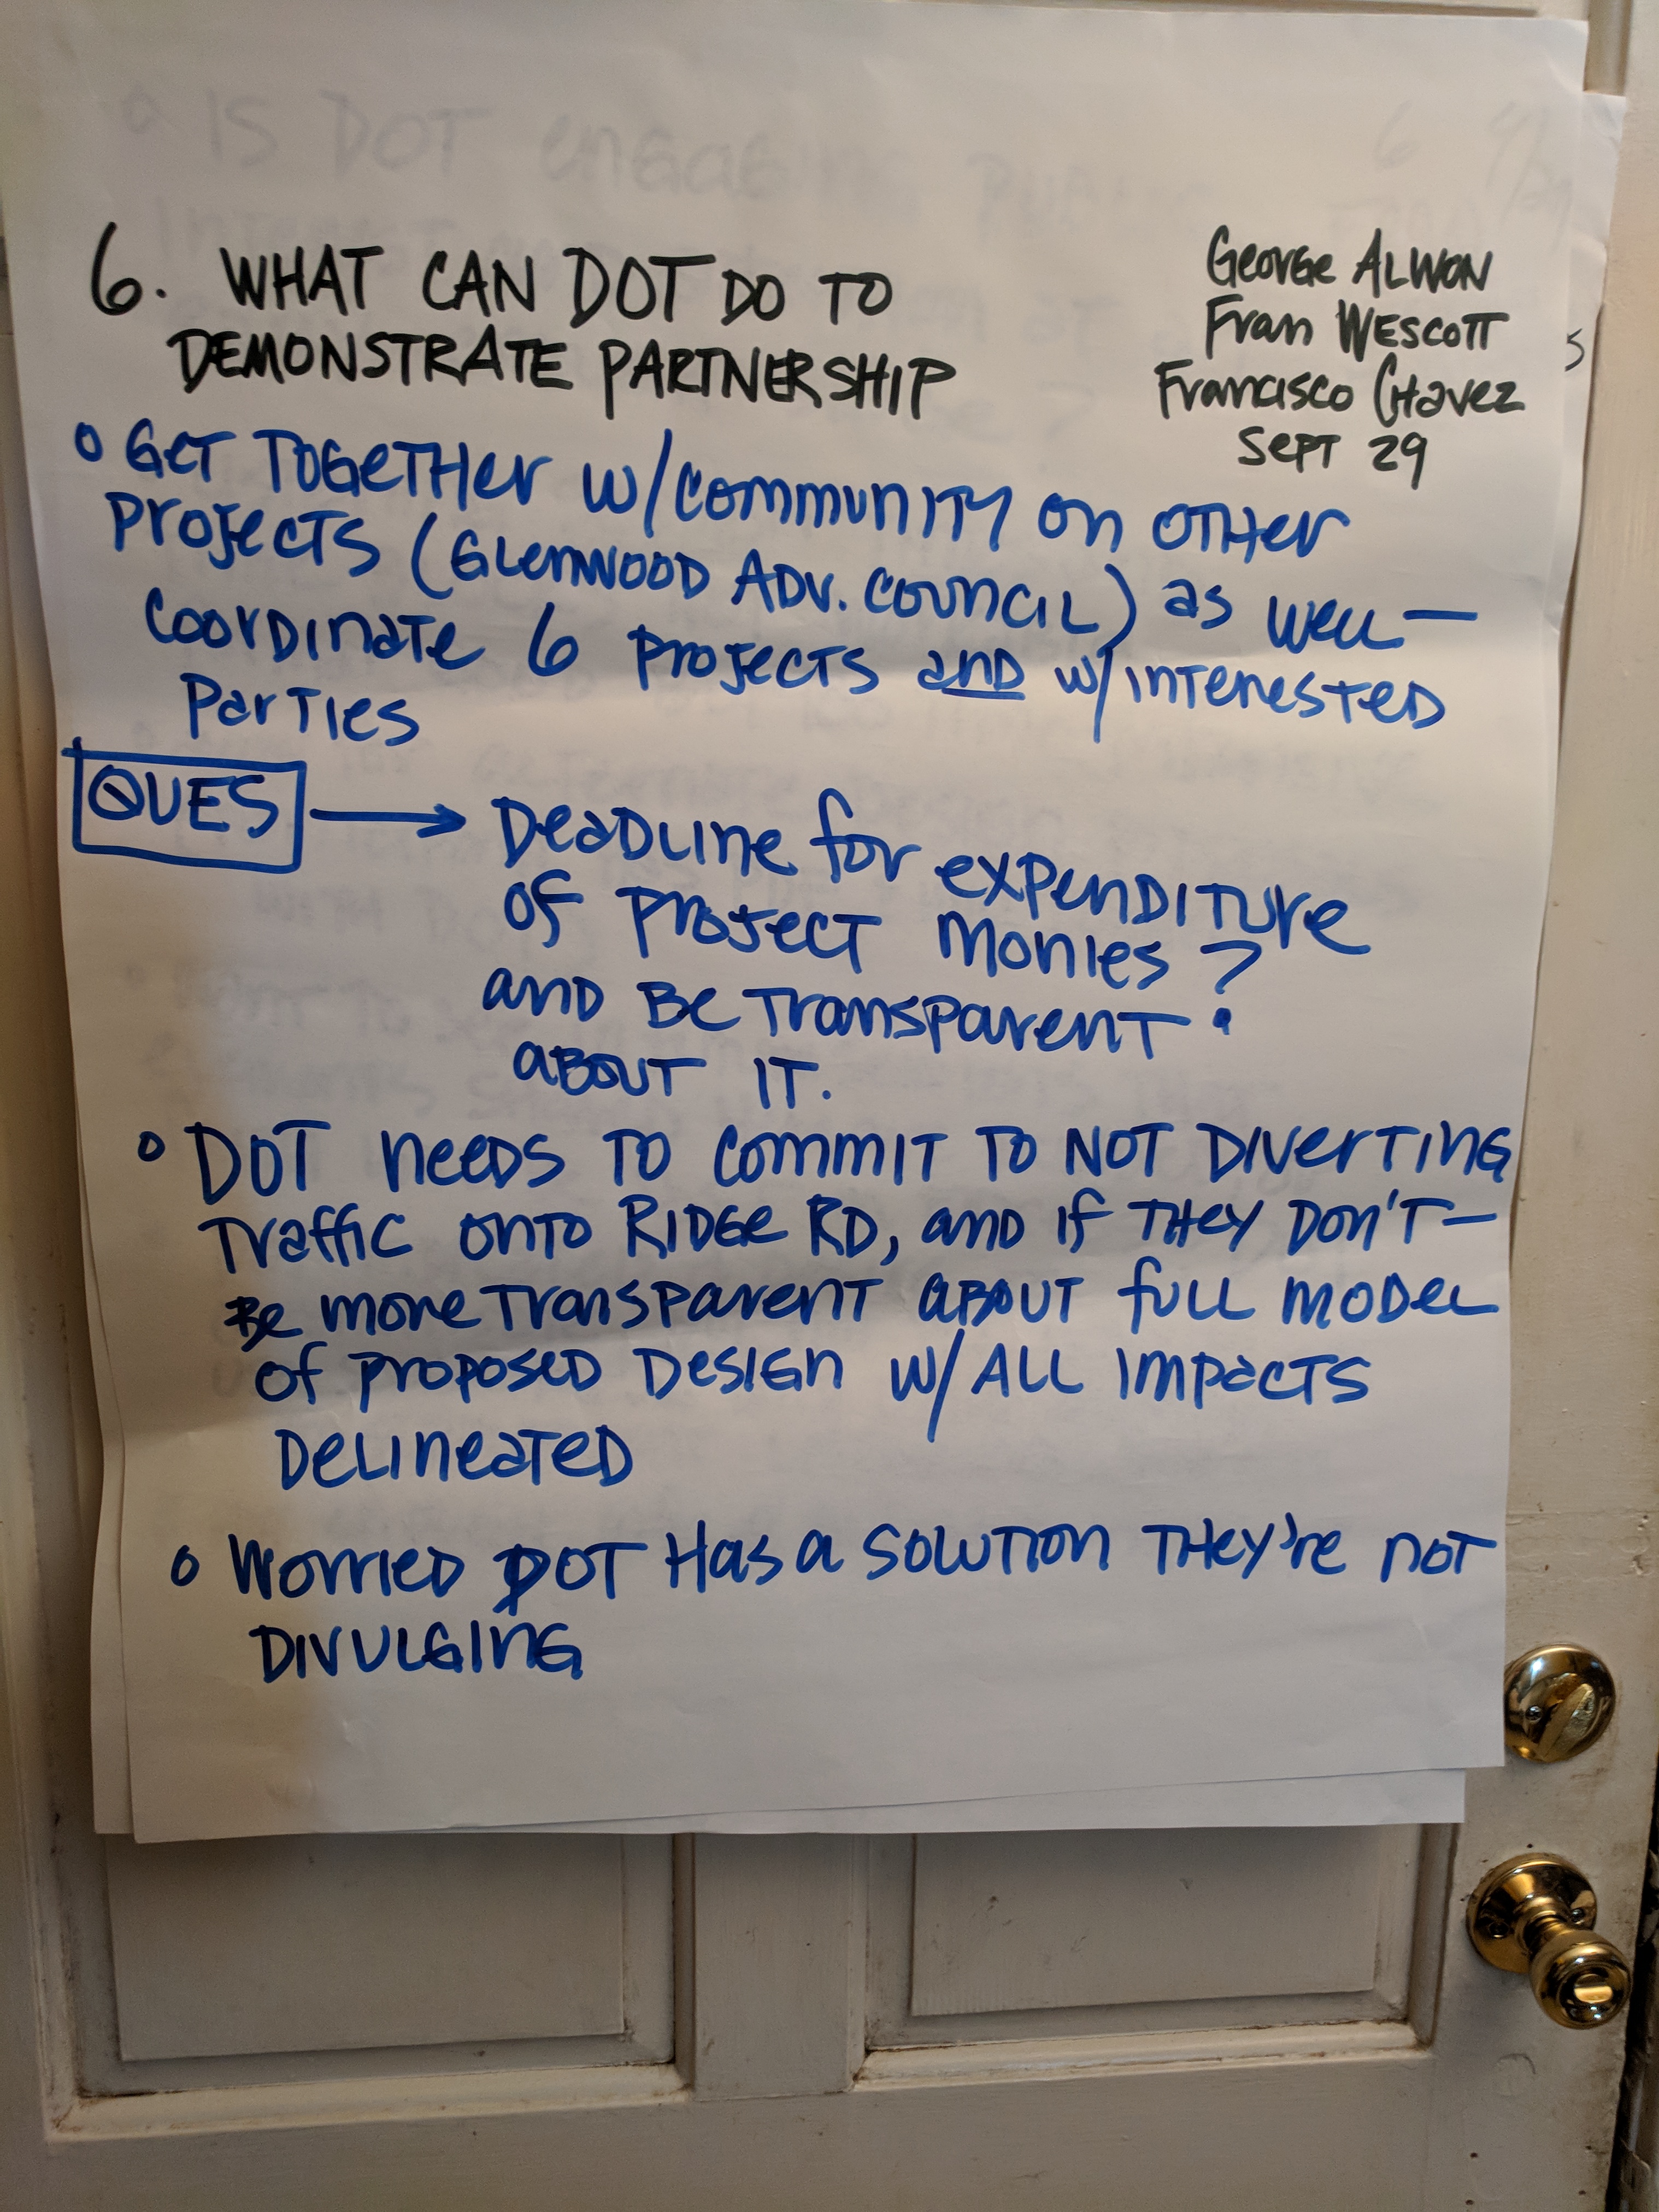 6. WHAT CAN DOT DO TO
DEMONSTRATE PARTNERSHIP
George ALWON
Fran WESCOTT
Francisco CHavez
SEPT 29
o GET TOGETHER W/COMMUNITY ON OTHER
PROJECTS (GLENWOOD ADV. COUNCIL) as WELL—
COORDINATE 6 PROJECTS and W/INTERESTED
PARTIES
QUES → DEADLINE for EXPENDITURE
OF PROJECT MONIES?
and BE TRANSPARENT
ABOUT IT.
o DOT NEEDS TO COMMIT TO NOT DIVERTING
TRAFFIC ONTO RIDGE RD, and IF THEY DON'T—
BE MORE TRANSPARENT ABOUT FULL MODEL
OF PROPOSED DESIGN W/ ALL IMPACTS
DELINEATED
o WORRIED DOT HAS a SOLUTION THEY're NOT
DIVULGING
IS DOT ENGAGING